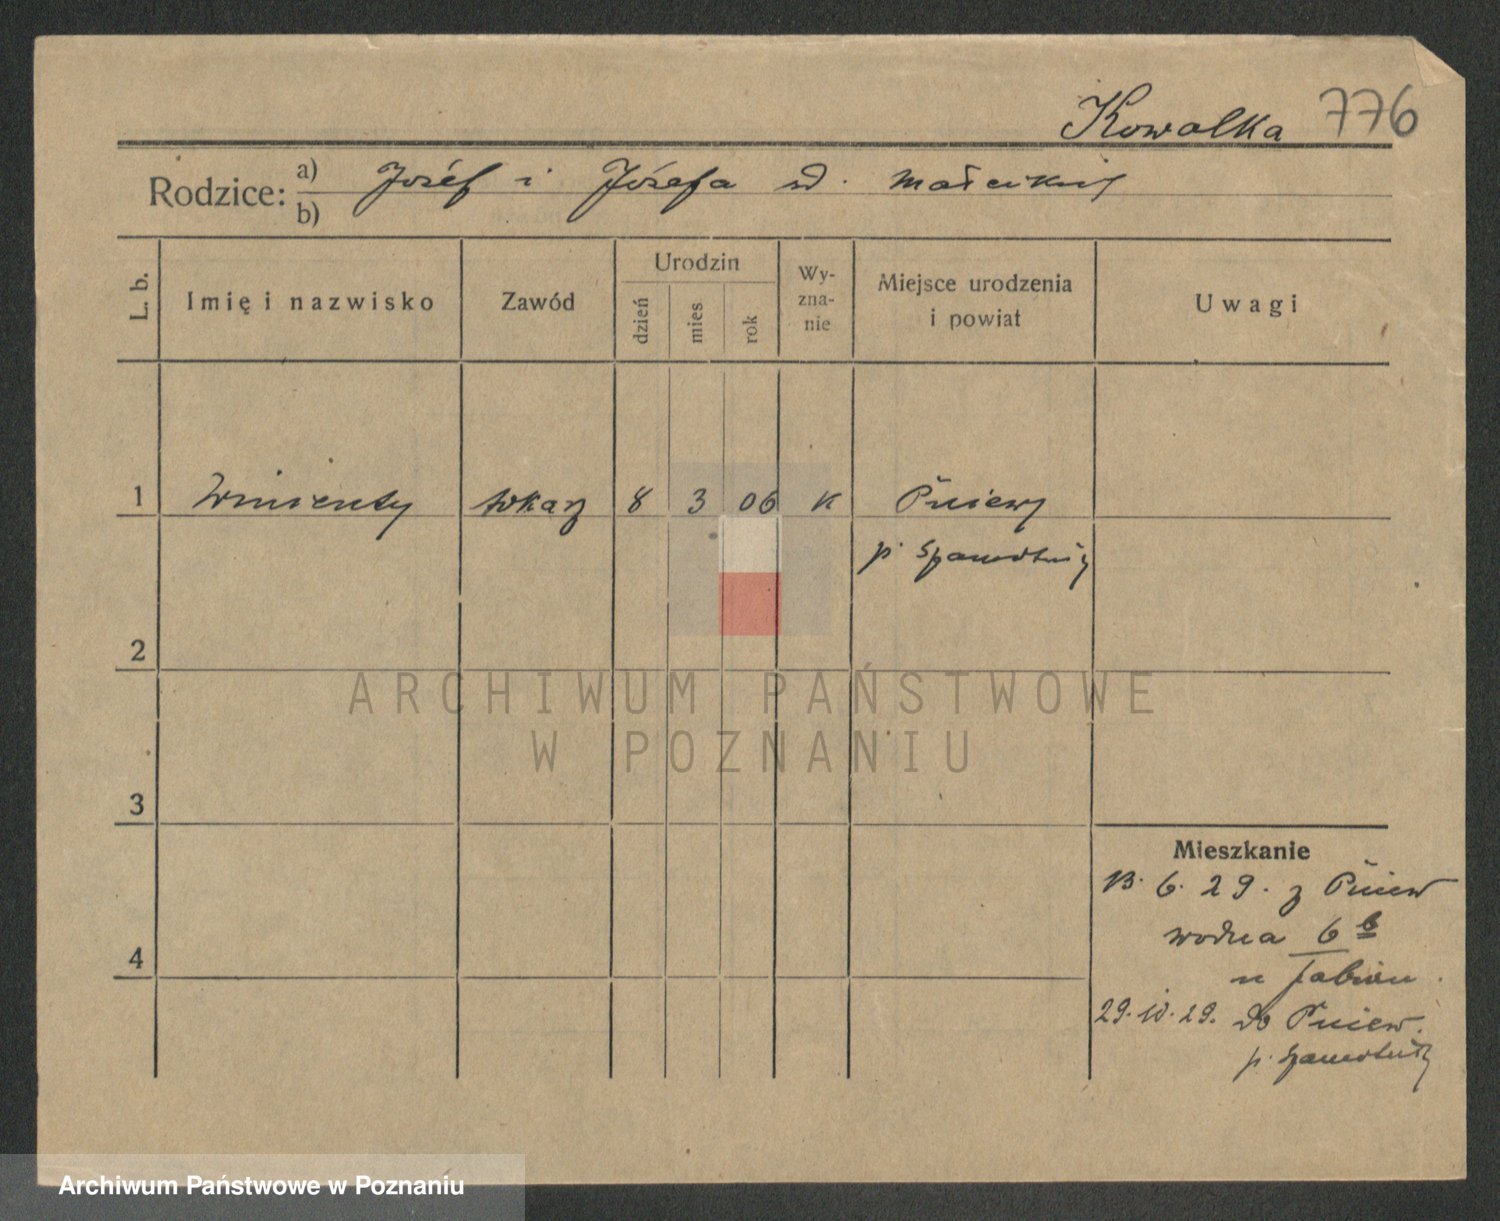 Kowalka 776
Rodzice: a) Józef i Józefa d.
b)
L. b. Imię i nazwisko Zawód Urodzin dzień mies rok Wy-zna-nie Miejsce urodzenia i powiat Uwagi
1 Wincenty tokarz 8 3 06 K Pniewy
p. Szamotuły
2
3
4
Mieszkanie
13. 6. 29. z Pniew
wodna 6 b
u
29. 10. 29. do Pniew.
p. Szamotuły
ARCHIWUM PAŃSTWOWE
W POZNANIU
Archiwum Państwowe w Poznaniu